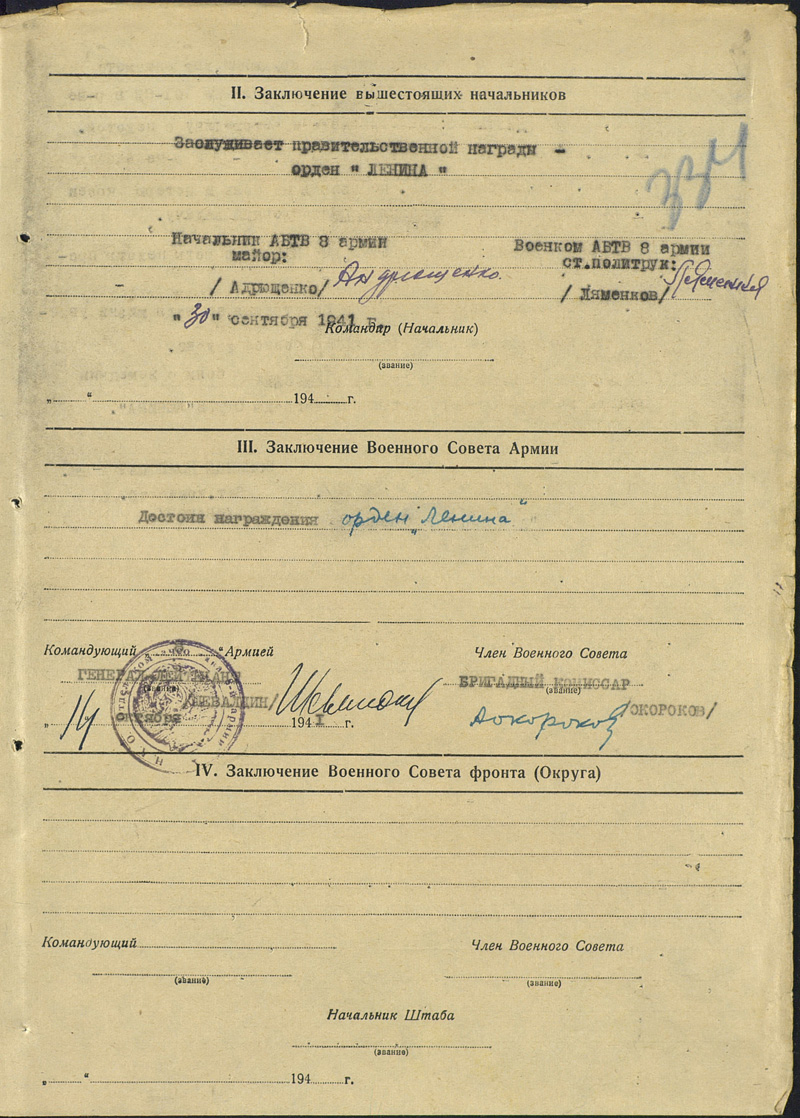 II. Заключение вышестоящих начальников
Заслуживает правительственной награды –
орден " ЛЕНИНА "
334
Начальник АБТВ 8 армии
майор:
/ Адрющенко/ Андрющенко.
Военком АБТВ 8 армии
ст.политрук:
/ Ляменков/
"30" сентября 1941 г.
Командир (Начальник)
(звание)
„ “ 194 г.
III. Заключение Военного Совета Армии
Достоин награждения орден „Ленина“
Командующий Армией
ГЕНЕРАЛ
(звание)
„14 октября 1941 г.
Член Военного Совета
БРИГАДНЫЙ КОМИССАР
(звание)
ОКОРОКОВ/
IV. Заключение Военного Совета фронта (Округа)
Командующий
(звание)
Член Военного Совета
(звание)
Начальник Штаба
(звание)
„ “ 194 г.